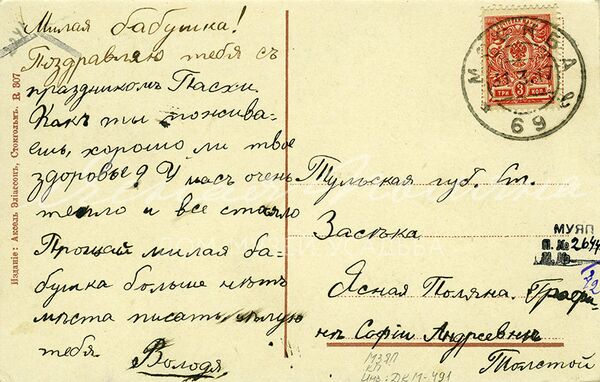 Милая бабушка!
Поздравляю тебя съ
праздникомъ Пасхи.
Какъ ты пожива-
ешь, хорошо ли твое
здоровье? У насъ очень
тепло и все стаяло
Прощай милая ба-
бушка больше нѣтъ
мѣста писать, цѣлую
тебя. Володя
Изданіе: Аксель Эліассонъ, Стокгольмъ. R 307
МОСКВА
31.3.17
69
ТРИ 3 КОП.
Тульская губ. Ст.
Засѣка
Ясная Поляна. Графи-
нѣ Софіи Андреевнѣ
Толстой
МУЯП
П. № 2644
И. №
МЗЯП
КП
Инв: ДКМ-491